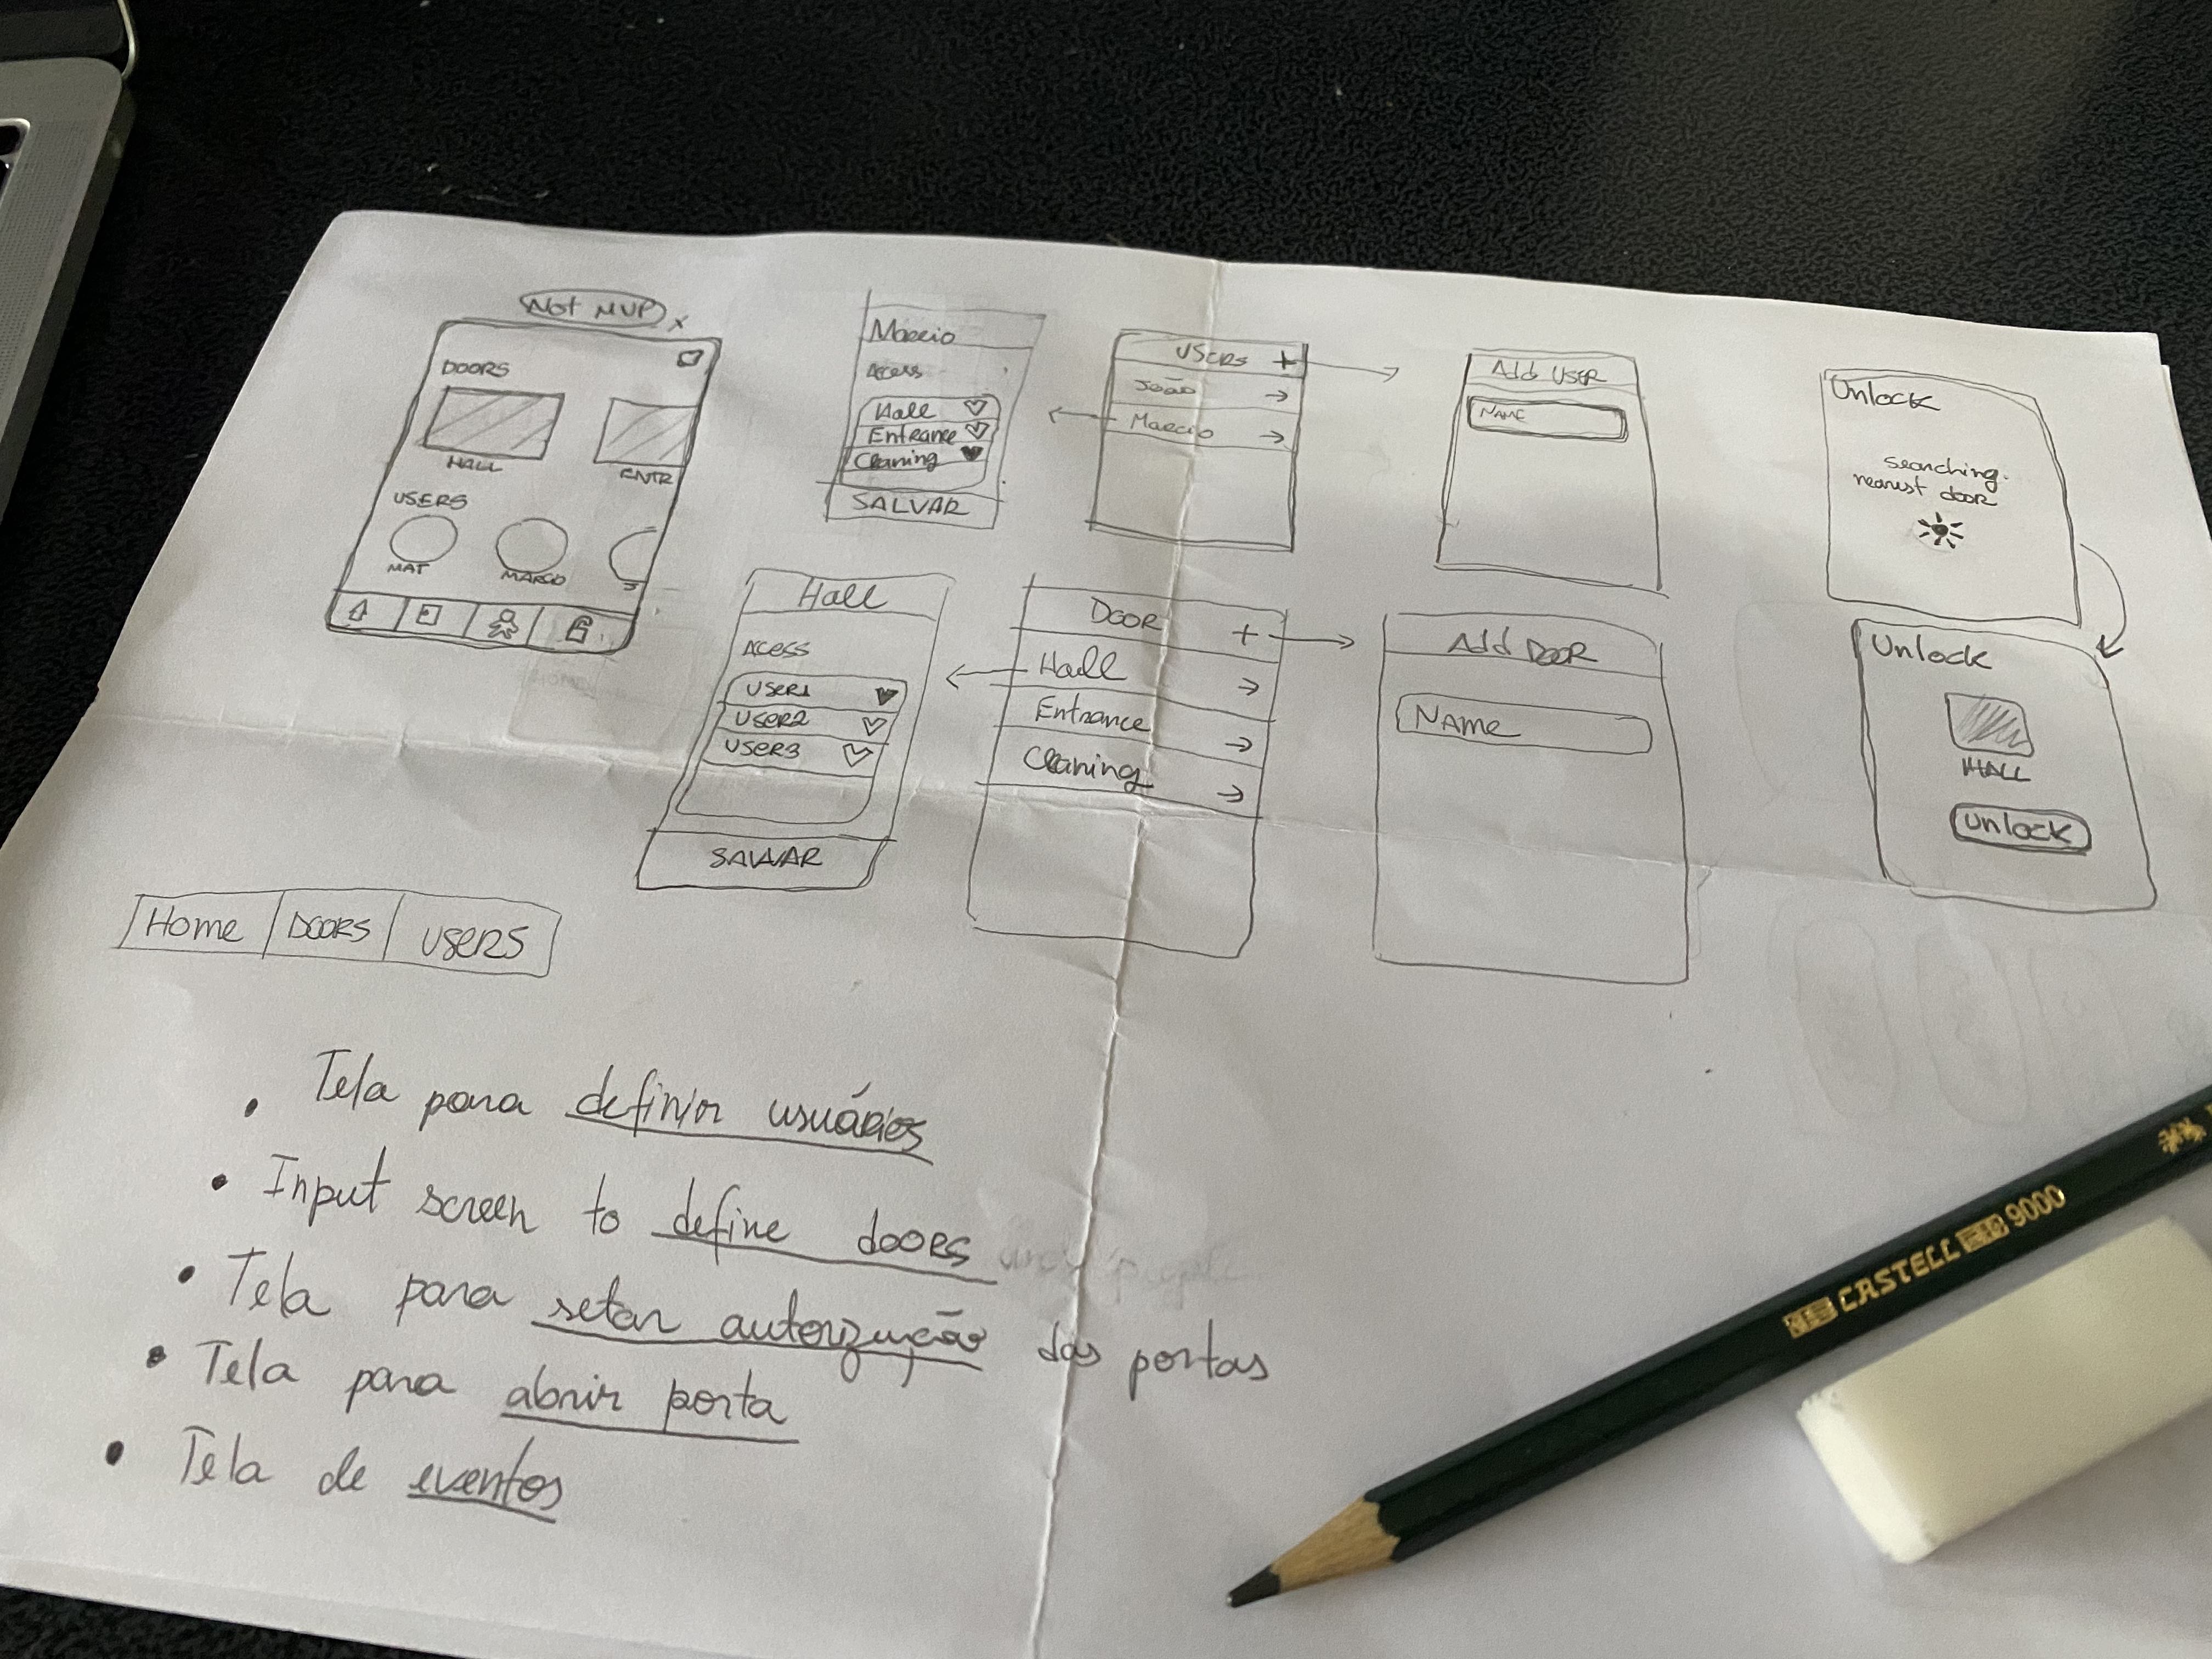 Not MVP x
DOORS
HALL
ENTR
USERS
MAT
MARCIO
Marcio
Access
Hall
Entrance
Cleaning
SALVAR
USERS +
João →
Marcio →
Add USER
NAME
Unlock
searching
nearest door
Hall
Acess
USER1
USER2
USER3
SALVAR
DOOR +
Hall →
Entrance →
Cleaning →
Add DOOR
NAME
Unlock
HALL
Unlock
Home DOORS USERS
• Tela para definir usuários
• Input screen to define doors
• Tela para setar autorização das portas
• Tela para abrir porta
• Tela de eventos
CASTELL 9000